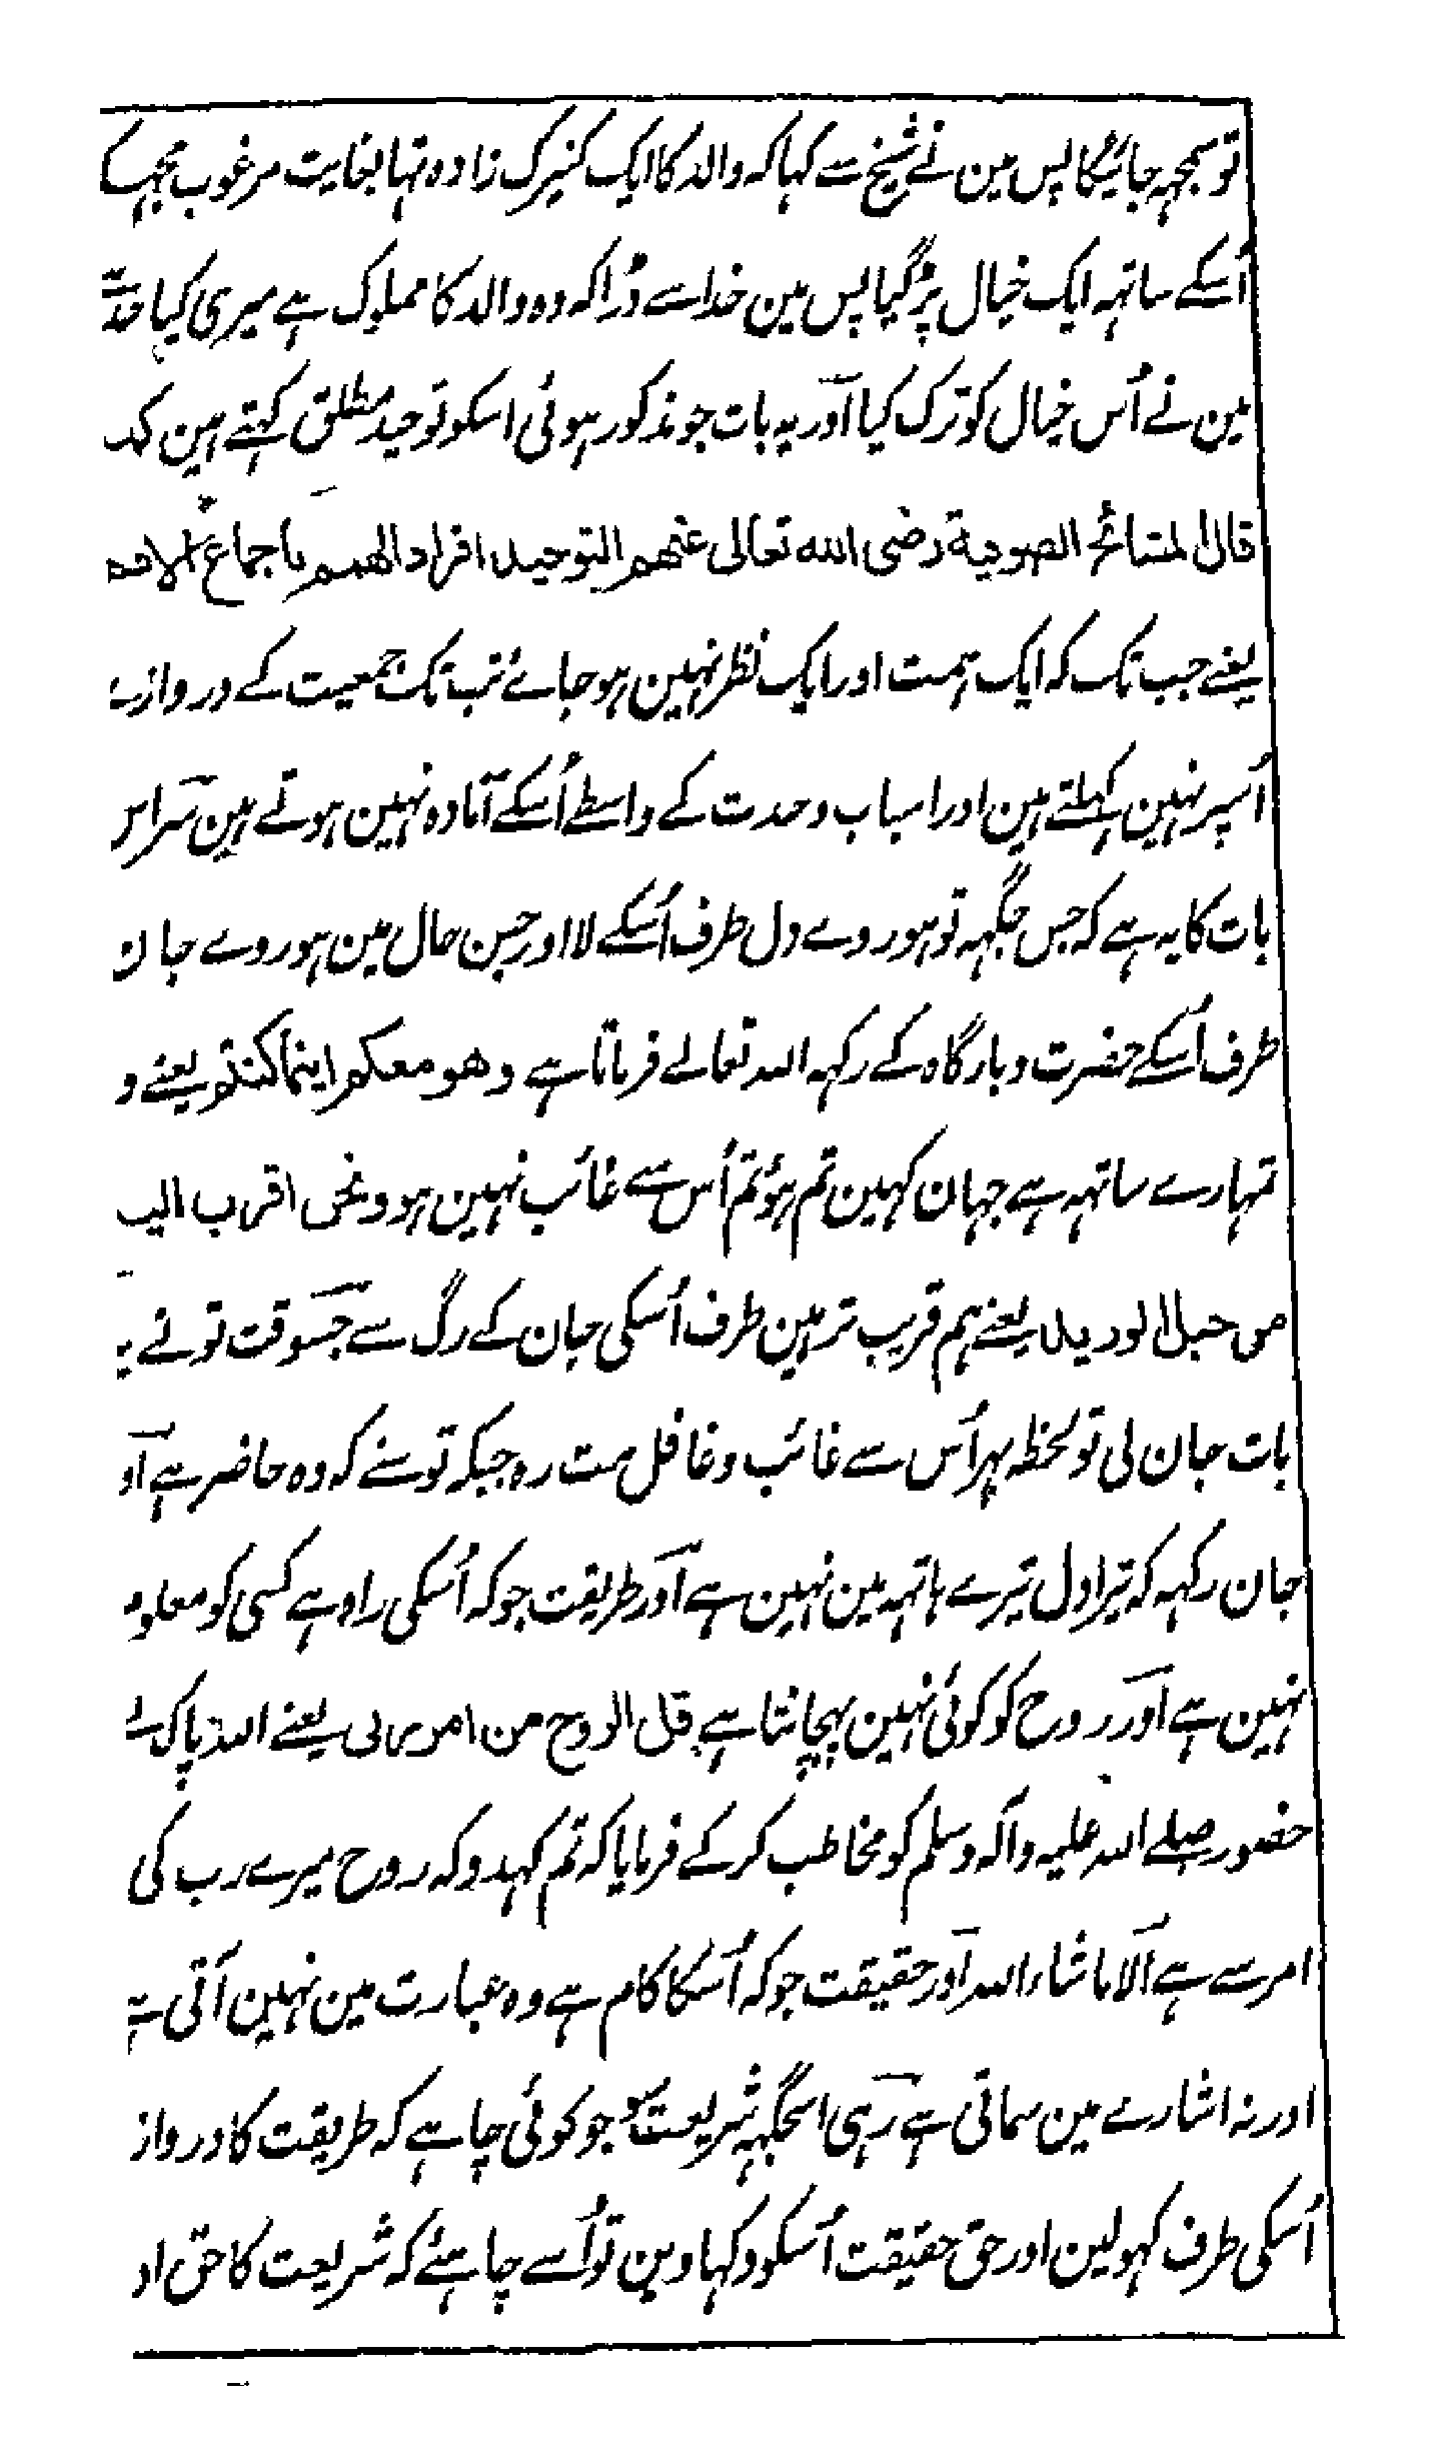 تو سمجہہ جائیگا پس مین نے شیخ سے کہا کہ والد کا ایک کنیزک زادہ تہا بغایت مرغوب مجہے
اُسکے ساتہہ ایک خیال پڑگیا پس مین خدا سے ڈرا کہ وہ والد کا مملوک ہے میری کیا
مین نے اُس خیال کو ترک کیا آور یہ بات جو مذکور ہوئی اسکو توحید مطلق کہتے ہین کہ
قال المشائخ الصوفیة رضی الله تعالی عنهم التوحید افراد الهمم باجماع
یعنے جب تک کہ ایک ہمت اور ایک نظر نہین ہوجاے تب تک جمعیت کے دروازے
اُسپر نہین کہلتے ہین اور اسباب وحدت کے واسطے اُسکے آمادہ نہین ہوتے ہین سَر اس
بات کا یہ ہے کہ جس جگہہ تو ہو روے دل طرف اُسکے لا اور جس حال مین ہو روے جان
طرف اُسکے حضرت و بارگاہ کے رکہہ اللہ تعالے فرماتا ہے وهو معکم اینما کنتم یعنے و
تمہارے ساتہہ ہے جہان کہین تم ہو تم اُس سے غائب نہین ہو ونحن اقرب الیہ
من حبل الورید یعنے ہم قریب تر ہین طرف اُسکی جان کے رگ سے جسَوقت تو نے یہ
بات جان لی تو لحظہ بہر اُس سے غائب و غافل مت رہ جبکہ تو سنے کہ وہ حاضر ہے آو
جان رکہہ کہ تیرا دل تیرے ہاتہہ مین نہین ہے آور طریقت جو کہ اُسکی راہ ہے کسی کو معلوم
نہین ہے اَور روح کو کوئی نہین پہچانتا ہے قل الروح من امر ربی یعنے اللہ پاک نے
حضور صلے اللہ علیہ وآلہ وسلم کو مخاطب کرکے فرمایا کہ تم کہدو کہ روح میرے رب کی
امر سے ہے اَلا ماشاء اللہ آور حقیقت جو کہ اُسکا کام ہے وہ عبارت مین نہین آتی ہے
اور نہ اشارے مین سماتی ہے رَہی اسجگہہ شریعت سو جو کوئی چاہے کہ طریقت کا درواز
اُسکی طرف کہولین اور حق حقیقت اُسکو دکہاوین تو اُسے چاہئے کہ شریعت کا حق اد